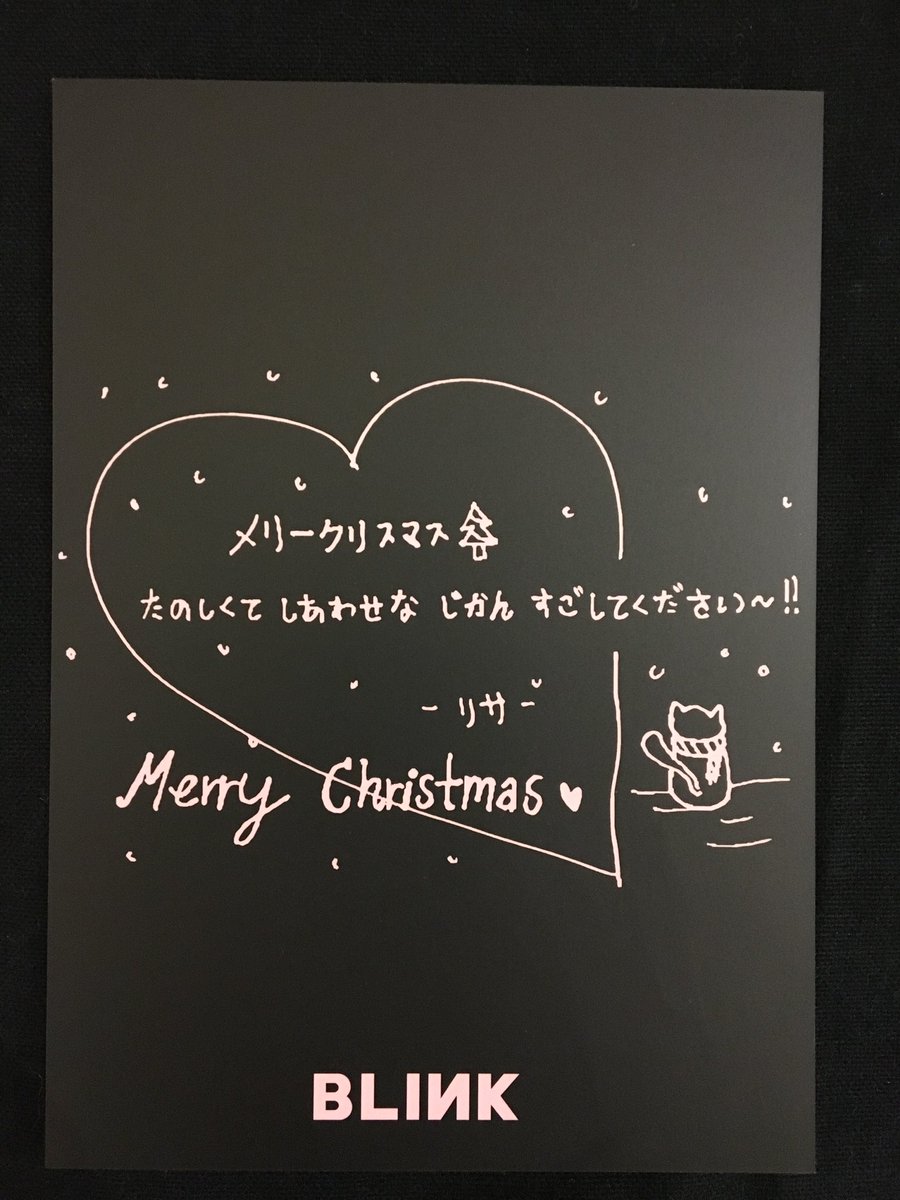 メリークリスマス
たのしくて しあわせな じかん すごしてください〜!!
- リサ -
Merry Christmas
BLINK